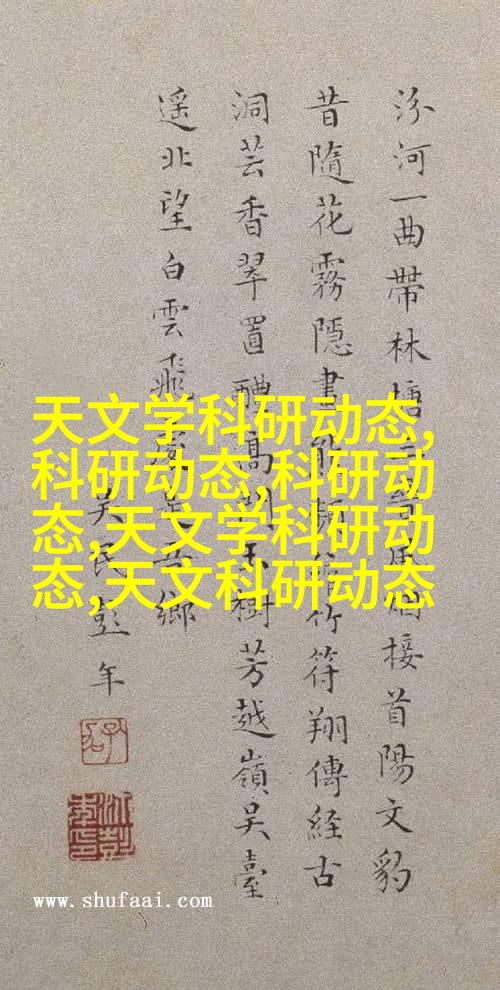 汾河一曲帶林塘接首陽文豹
昔隨花霧隱書竹符翔傳經古
洞芸香翠置醴高樹芳越嶺吳臺
遥北望白雲飛鄉
民彭年
天文学科研动态,
科研动态,科研动
态,天文学科研动
态,天文科研动态
www.shufaai.com